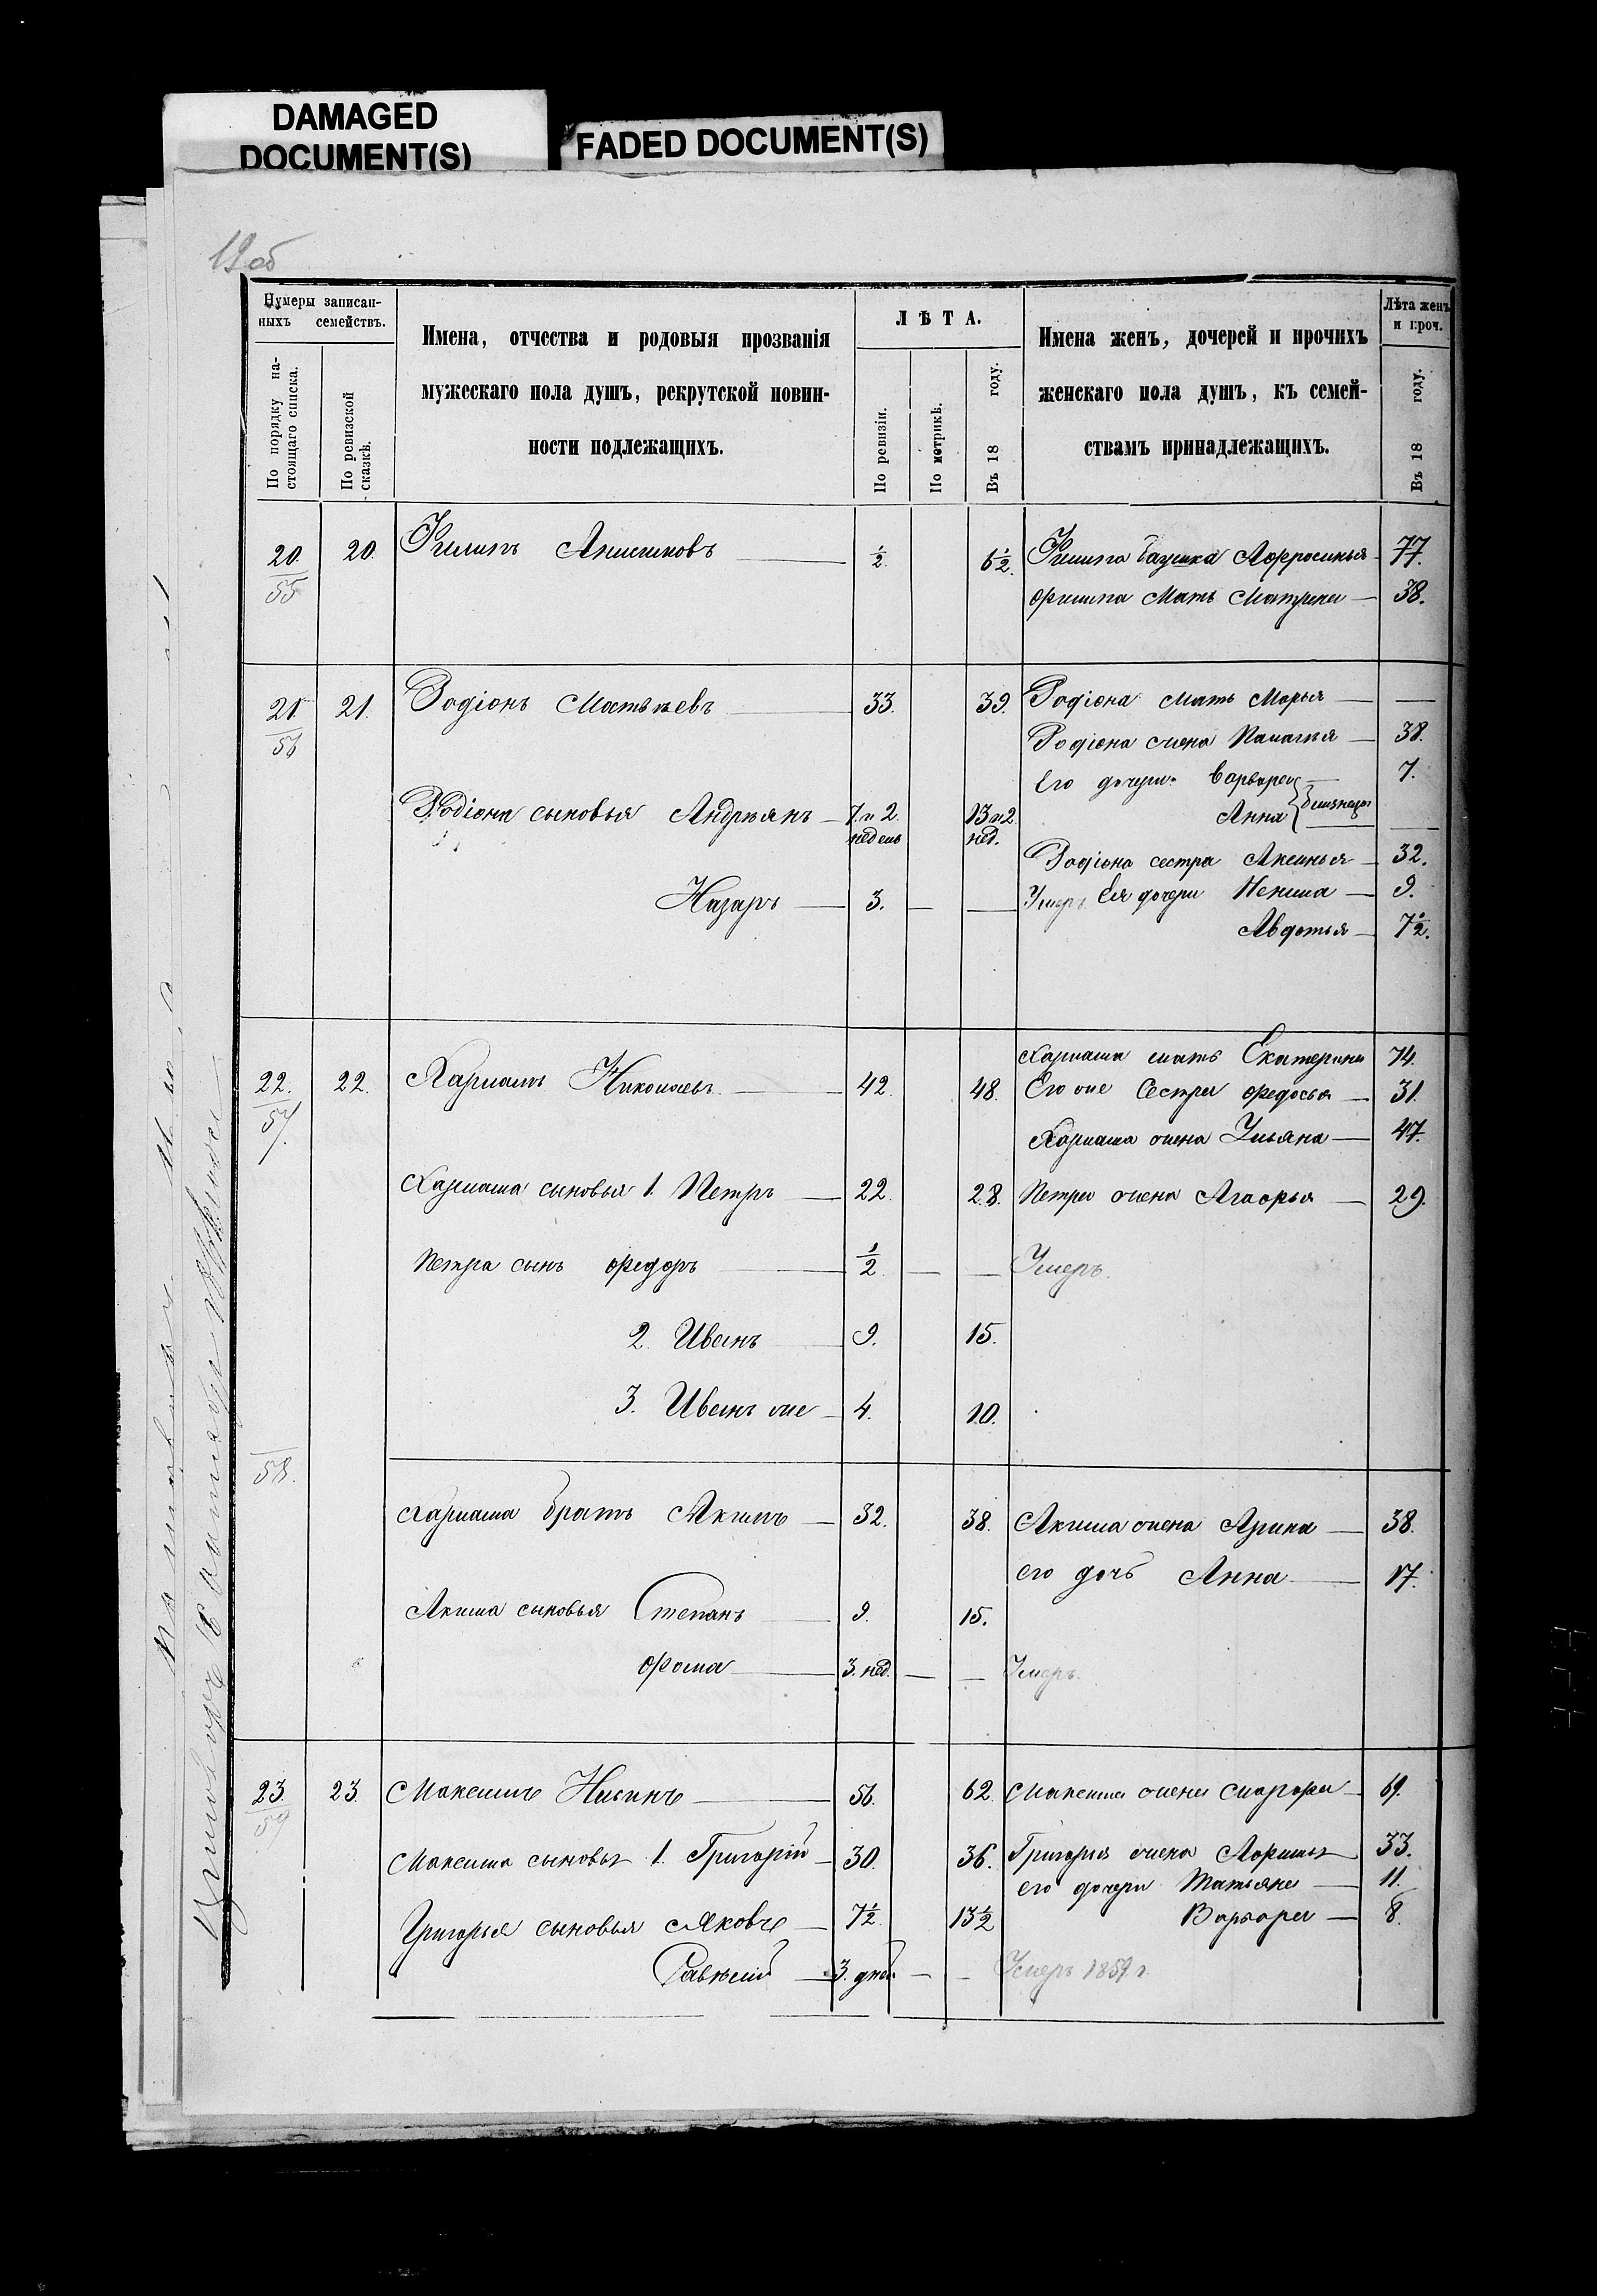 DAMAGED
DOCUMENT(S)
FADED DOCUMENT(S)
19 об
Нумеры записан-
ныхъ семействъ.
По порядку на-
стоящаго списка.
По ревизской
сказкѣ.
Имена, отчества и родовыя прозванія
мужескаго пола душъ, рекрутской повин-
ности подлежащихъ.
ЛѢТА.
По ревизіи.
По метрикѣ.
Въ 18 году.
Имена женъ, дочерей и прочихъ
женскаго пола душъ, къ семей-
ствамъ принадлежащихъ.
Лѣта женъ
и проч.
Въ 18 году.
20. 20. Филипъ Анисимовъ ½ 6½. Филипа баушка Афросинья 77.
55 Филипа Мать Матрена 38.
21. 21. Родіонъ Матвѣевъ 33. 39. Родіона Мать Марья —
56 Родіона жена Палагья 38.
Его дочери Варвара 7.
Анна близнецы
Родіона сыновья Андреянъ 7. и 2. недель 13 и 2 нед.
Родіона сестра Аксинья 32.
Назаръ 3. — — Умеръ Ея дочери Ненила 9.
Авдотья 7½.
Харлама мать Екатерина 74.
22. 22. Харламъ Николаевъ 42. 48. Его же Сестра Федосья 31.
57. Харлама жена Ульяна 47.
Харлама сыновья 1. Петръ 22. 28. Петра жена Агафья 29.
Петра сынъ Федоръ ½ — — Умеръ.
2. Иванъ 9. 15.
3. Иванъ же 4. 10.
58.
Харлама братъ Акимъ 32. 38. Акима жена Арина 38.
его дочь Анна 17.
Акима сыновья Степанъ 9. 15.
Фома 3. нед. — — Умеръ.
23. 23. Максимъ 56. 62. Максима жена Марфа 61.
59
Максима сыновья 1. Григорій 30. 36. Григорья жена 33.
его дочери Татьяна 11.
Григорья сыновья Яковъ 7½ 13½ Варвара 8.
Савелій 3. дней — — Умеръ 1857 г.